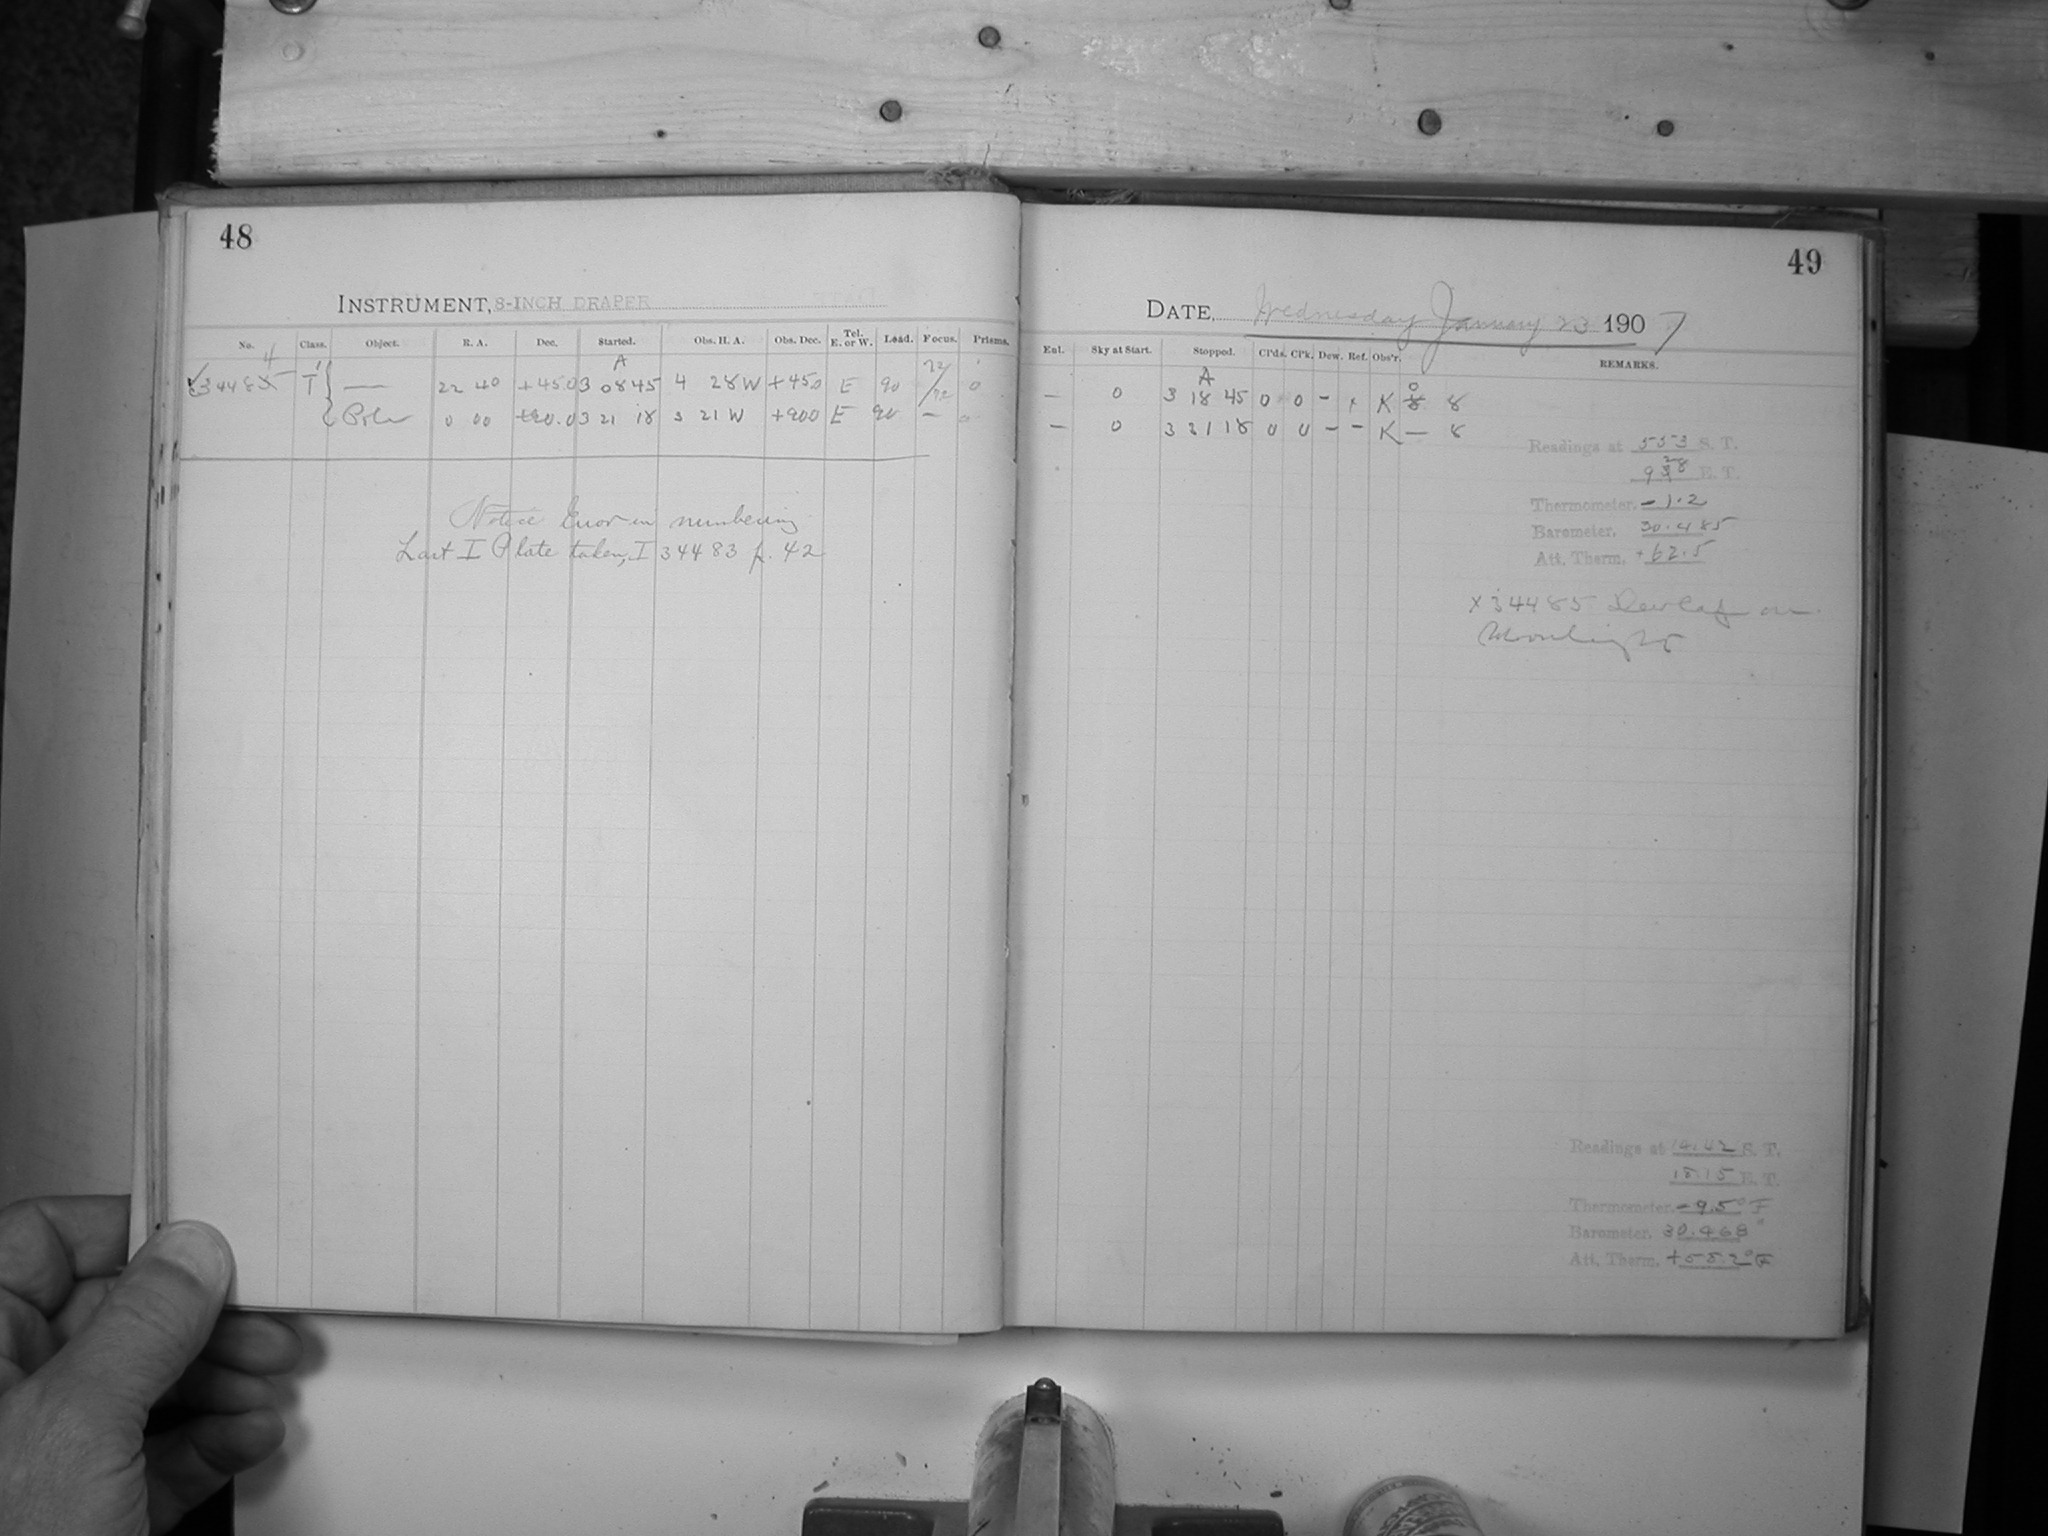 48
INSTRUMENT, 8-INCH DRAPER
No. Class. Object. R. A. Dec. Started. Obs. H. A. Obs. Dec. Tel. E. or W. Lead. Focus. Prisms.
4 A 72/
34485 T 22 40 +45.0 3 08 45 4 28 W +45.0 E 90 72 0
0 00 +90.0 3 21 18 3 21 W +90.0 E 90 —
Notice Error in numbering
Last I Plate taken, I 34483 p. 42
49
DATE, Wednesday January 23 1907
Eul. Sky at Start. Stopped. Cl'ds. Cl'k. Dew. Ref. Obs'r. REMARKS.
A
— 0 3 18 45 0 0 - x K 8
— 0 3 21 18 0 0 - - K — 8
Readings at 553 S. T.
E. T.
Thermometer. -1.2
Barometer. 30.485
Att. Therm. +62.5
x 34485 Dew Cap on
Readings at 14.42 S. T.
18.15 E. T.
Thermometer. -9.5° F
Barometer. 30.468"
Att. Therm. +58.2° F